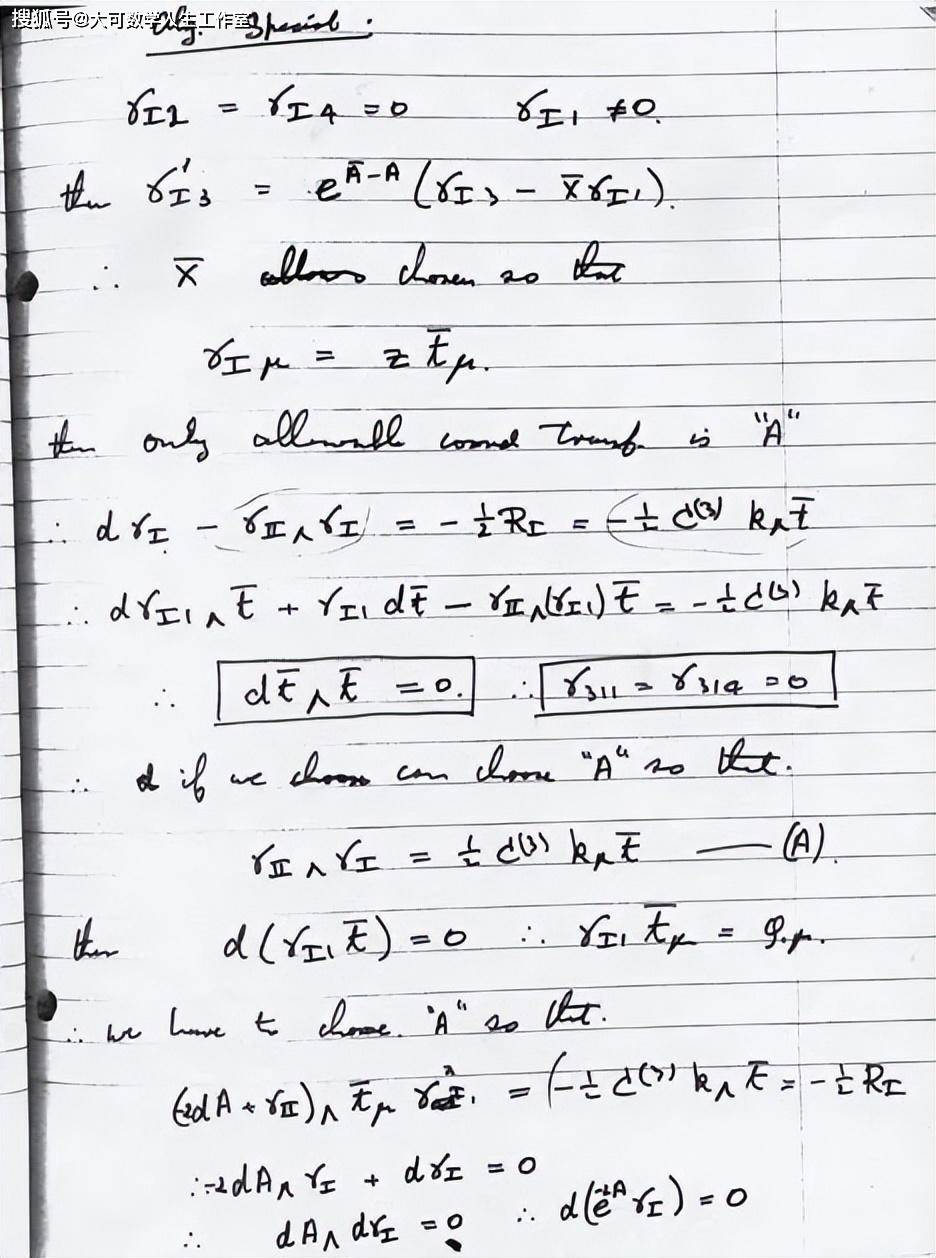 搜狐号@大可数学人生工作室
Alg. Special:
γ_I2 = γ_I4 = 0 γ_I1 ≠ 0.
then γ'_I3 = e^{Ā-A} (γ_I3 - x̄ γ_I1).
∴ x̄ chosen so that
γ_Iμ = z t̄_μ.
then only allowable transf. is "A"
∴ dγ_I - γ_II ∧ γ_I = -½ R_I = -½ C^(3) k ∧ t̄
∴ dγ_I1 ∧ t̄ + γ_I1 dt̄ - γ_II ∧ (γ_I1) t̄ = -½ C^(3) k ∧ t̄
∴ dt̄ ∧ t̄ = 0. ∴ γ_311 = γ_314 = 0
∴ if we can choose "A" so that.
γ_II ∧ γ_I = ½ C^(3) k ∧ t̄ —— (A).
then d(γ_I1 t̄) = 0 ∴ γ_I1 t̄_μ = φ,μ.
∴ we have to choose "A" so that.
(-2dA + γ_II) ∧ t̄_μ γ_I1 = (-½ C^(3) k ∧ t̄ = -½ R_I
∴ -2dA ∧ γ_I + dγ_I = 0
∴ dA ∧ dγ_I = 0 ∴ d(e^{-2A} γ_I) = 0